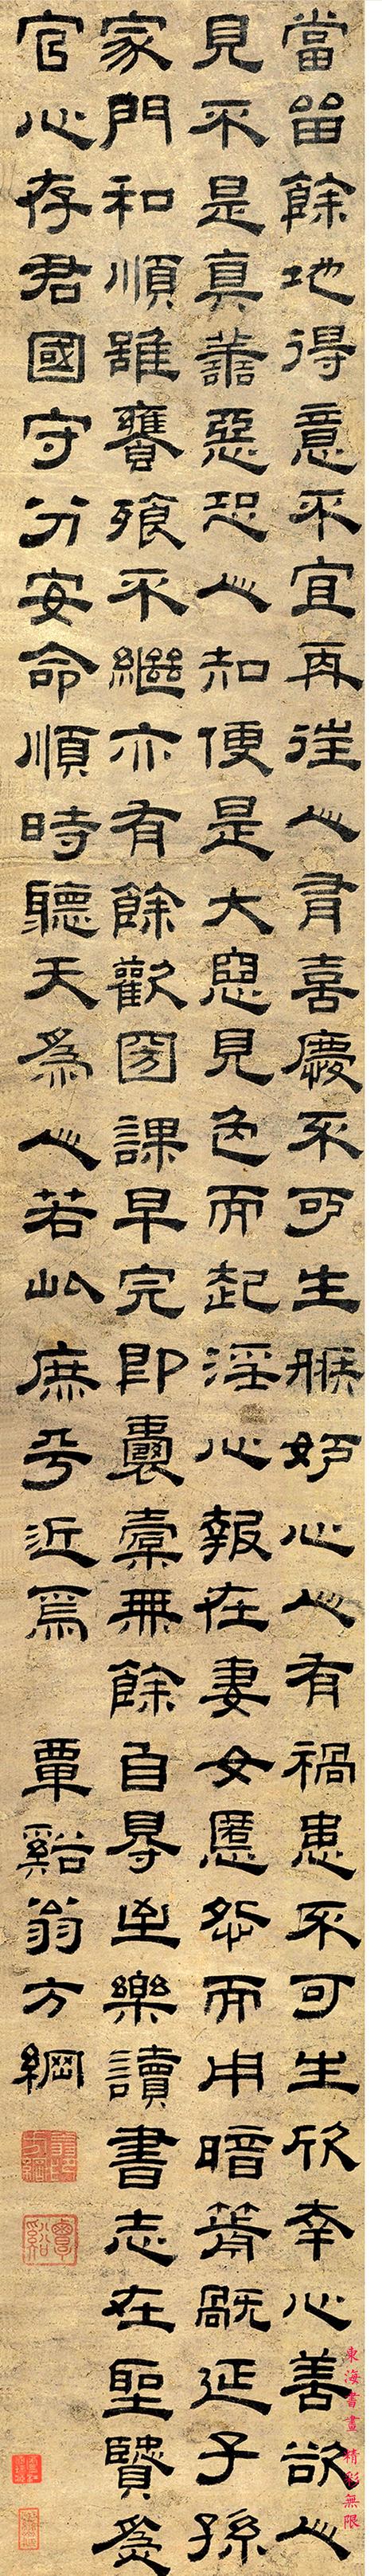 當留餘地得意不宜再往人有喜慶不可生嫉妒心人有禍患不可生欣幸心善欲人
見不是真善惡恐人知便是大惡見色而起淫心報在妻女匿怨而用暗箭禍延子孫
家門和順雖饔飧不繼亦有餘歡國課早完即囊橐無餘自得至樂讀書志在聖賢爲
官心存君國守分安命順時聽天爲人若此庶乎近焉 覃谿翁方綱
東海書畫 精彩無限